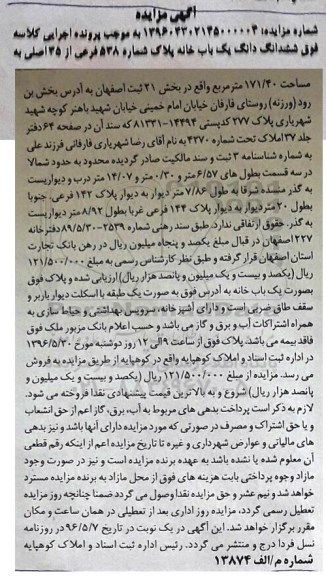 آگهی مزایده
شماره مزایده: ۱۳۹۶۰۳۳۰۲۱۴۵۰۰۰۰۰۴ به موجب پرونده اجرایی کلاسه
فوق ششدانگ دانگ یک باب خانه پلاک شماره ۵۳۸ فرعی از ۳۵ اصلی به
مساحت ۱۷۱/۴۰ مترمربع واقع در بخش ۲۱ ثبت اصفهان به آدرس بخش بن
رود (ورزنه) روستای فارفان خیابان امام خمینی خیابان شهید باهنر کوچه شهید
شهریاری پلاک ۲۷۷ کدپستی ۱۴۴۹۴-۸۱۳۳۱ که سند آن در صفحه ۶۴ دفتر
جلد ۳۷ املاک تحت شماره ۴۳۷۰ به نام آقای رضا شهریاری فارفانی فرزند علی
به شماره شناسنامه ۳ ثبت و سند مالکیت صادر گردیده محدود به حدود شمالا
در سه قسمت بطول های ۶/۵۷ متر و ۰/۳۰ متر و ۱۴/۰۷ متر درب و دیواریست
به گذر منسده شرقا به طول ۷/۸۶ متر دیوار به دیوار پلاک ۱۴۲ فرعی. جنوبا
بطول ۲۰ متر دیوار به دیوار پلاک ۱۴۴ فرعی غربا بطول ۸/۹۲ متر دیواریست
به گذر. حقوق ارتفاقی ندارد. طبق سند رهنی شماره ۲۵۳۹-۸۹/۵/۳۰ دفترخانه
۲۲۷ اصفهان در قبال مبلغ یکصد و پنجاه میلیون ریال در رهن بانک تجارت
استان اصفهان قرار گرفته و طبق نظر کارشناس رسمی به مبلغ ۱۲۱/۵۰۰/۰۰۰
ریال (یکصد و بیست و یک میلیون و پانصد هزار ریال) ارزیابی شده و پلاک فوق
بصورت یک باب خانه به آدرس فوق به صورت یک طبقه با اسکلت دیوار باربر و
سقف طاق ضربی است و دارای آشپزخانه، سرویس بهداشتی و حیاط سازی به
همراه اشتراکات آب و برق و گاز می باشد و حسب اعلام بانک مزبور ملک فوق
فاقد بیمه می باشد. پلاک فوق از ساعت ۹ الی ۱۲ روز دوشنبه مورخ ۱۳۹۶/۵/۳۰
در اداره ثبت اسناد و املاک کوهپایه واقع در کوهپایه از طریق مزایده به فروش
می رسد. مزایده از مبلغ ۱۲۱/۵۰۰/۰۰۰ ریال (یکصد و بیست و یک میلیون و
پانصد هزار ریال) شروع و به بالاترین قیمت پیشنهادی نقدا فروخته می شود.
لازم به ذکر است پرداخت بدهی های مربوط به آب، برق، گاز اعم از حق انشعاب
و یا حق اشتراک و مصرف در صورتی که مورد مزایده دارای آنها باشد و نیز بدهی
های مالیاتی و عوارض شهرداری و غیره تا تاریخ مزایده اعم از اینکه رقم قطعی
آن معلوم شده یا نشده باشد به عهده برنده مزایده است و نیز در صورت وجود
مازاد وجوه پرداختی بابت هزینه های فوق از محل مازاد به برنده مزایده مسترد
خواهد شد و نیم عشر و حق مزایده نقدا وصول می گردد ضمنا چنانچه روز مزایده
تعطیل رسمی گردد، مزایده روز اداری بعد از تعطیلی در همان ساعت و مکان
مقرر برگزار خواهد شد. این آگهی در یک نوبت در تاریخ ۹۶/۵/۷ در روزنامه
نسل فردا درج و منتشر می گردد. رئیس اداره ثبت اسناد و املاک کوهپایه
شماره م/الف ۱۳۸۷۴